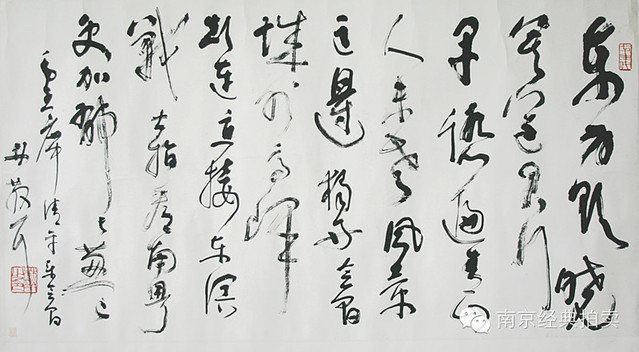 东方欲晓
莫道君行
早踏遍青山
人未老風景
這邊獨好会昌
城外高峰
颠连直接东溟
戰士指看南粵
更加郁郁葱葱
毛主席清平乐会昌
林散耳
南京经典拍卖